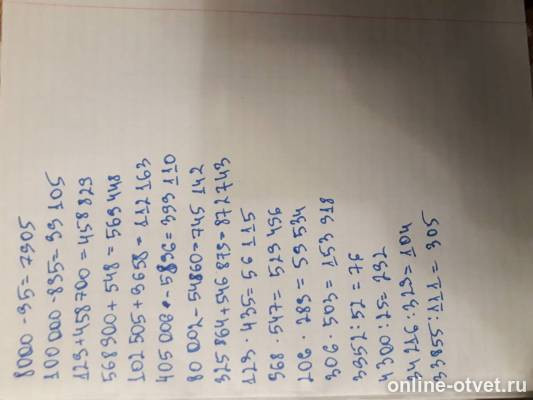 8000 - 95 = 7905
100 000 - 895 = 99 105
129 + 458 700 = 458 829
568 900 + 548 = 569 448
102 505 + 9658 = 112 163
405 006 - 5896 = 399 110
80 002 - 54860 = 745 142
325 864 + 546 879 = 872 743
129 · 435 = 56 115
968 · 547 = 529 496
206 · 289 = 59 534
306 · 503 = 153 918
3952 : 52 = 76
4300 : 25 = 232
34 216 : 329 = 104
33855 : 111 = 305
online-otvet.ru